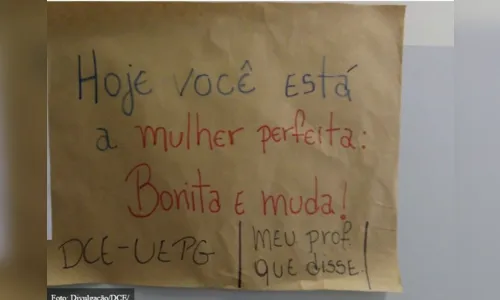 Hoje você está
a mulher perfeita:
Bonita e muda!
DCE-UEPG
Meu prof.
que disse
Foto: Divulgação/DCE/